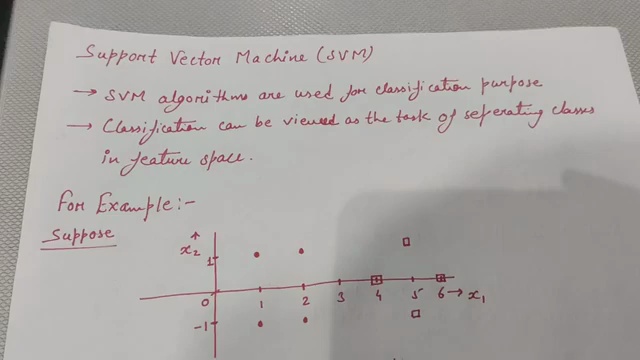 Support Vector Machine (SVM)
→ SVM algorithms are used for classification purpose
→ Classification can be viewed as the task of seperating classes
in feature space.
For Example:-
Suppose
x₂
1
0 1 2 3 4 5 6 → x₁
-1